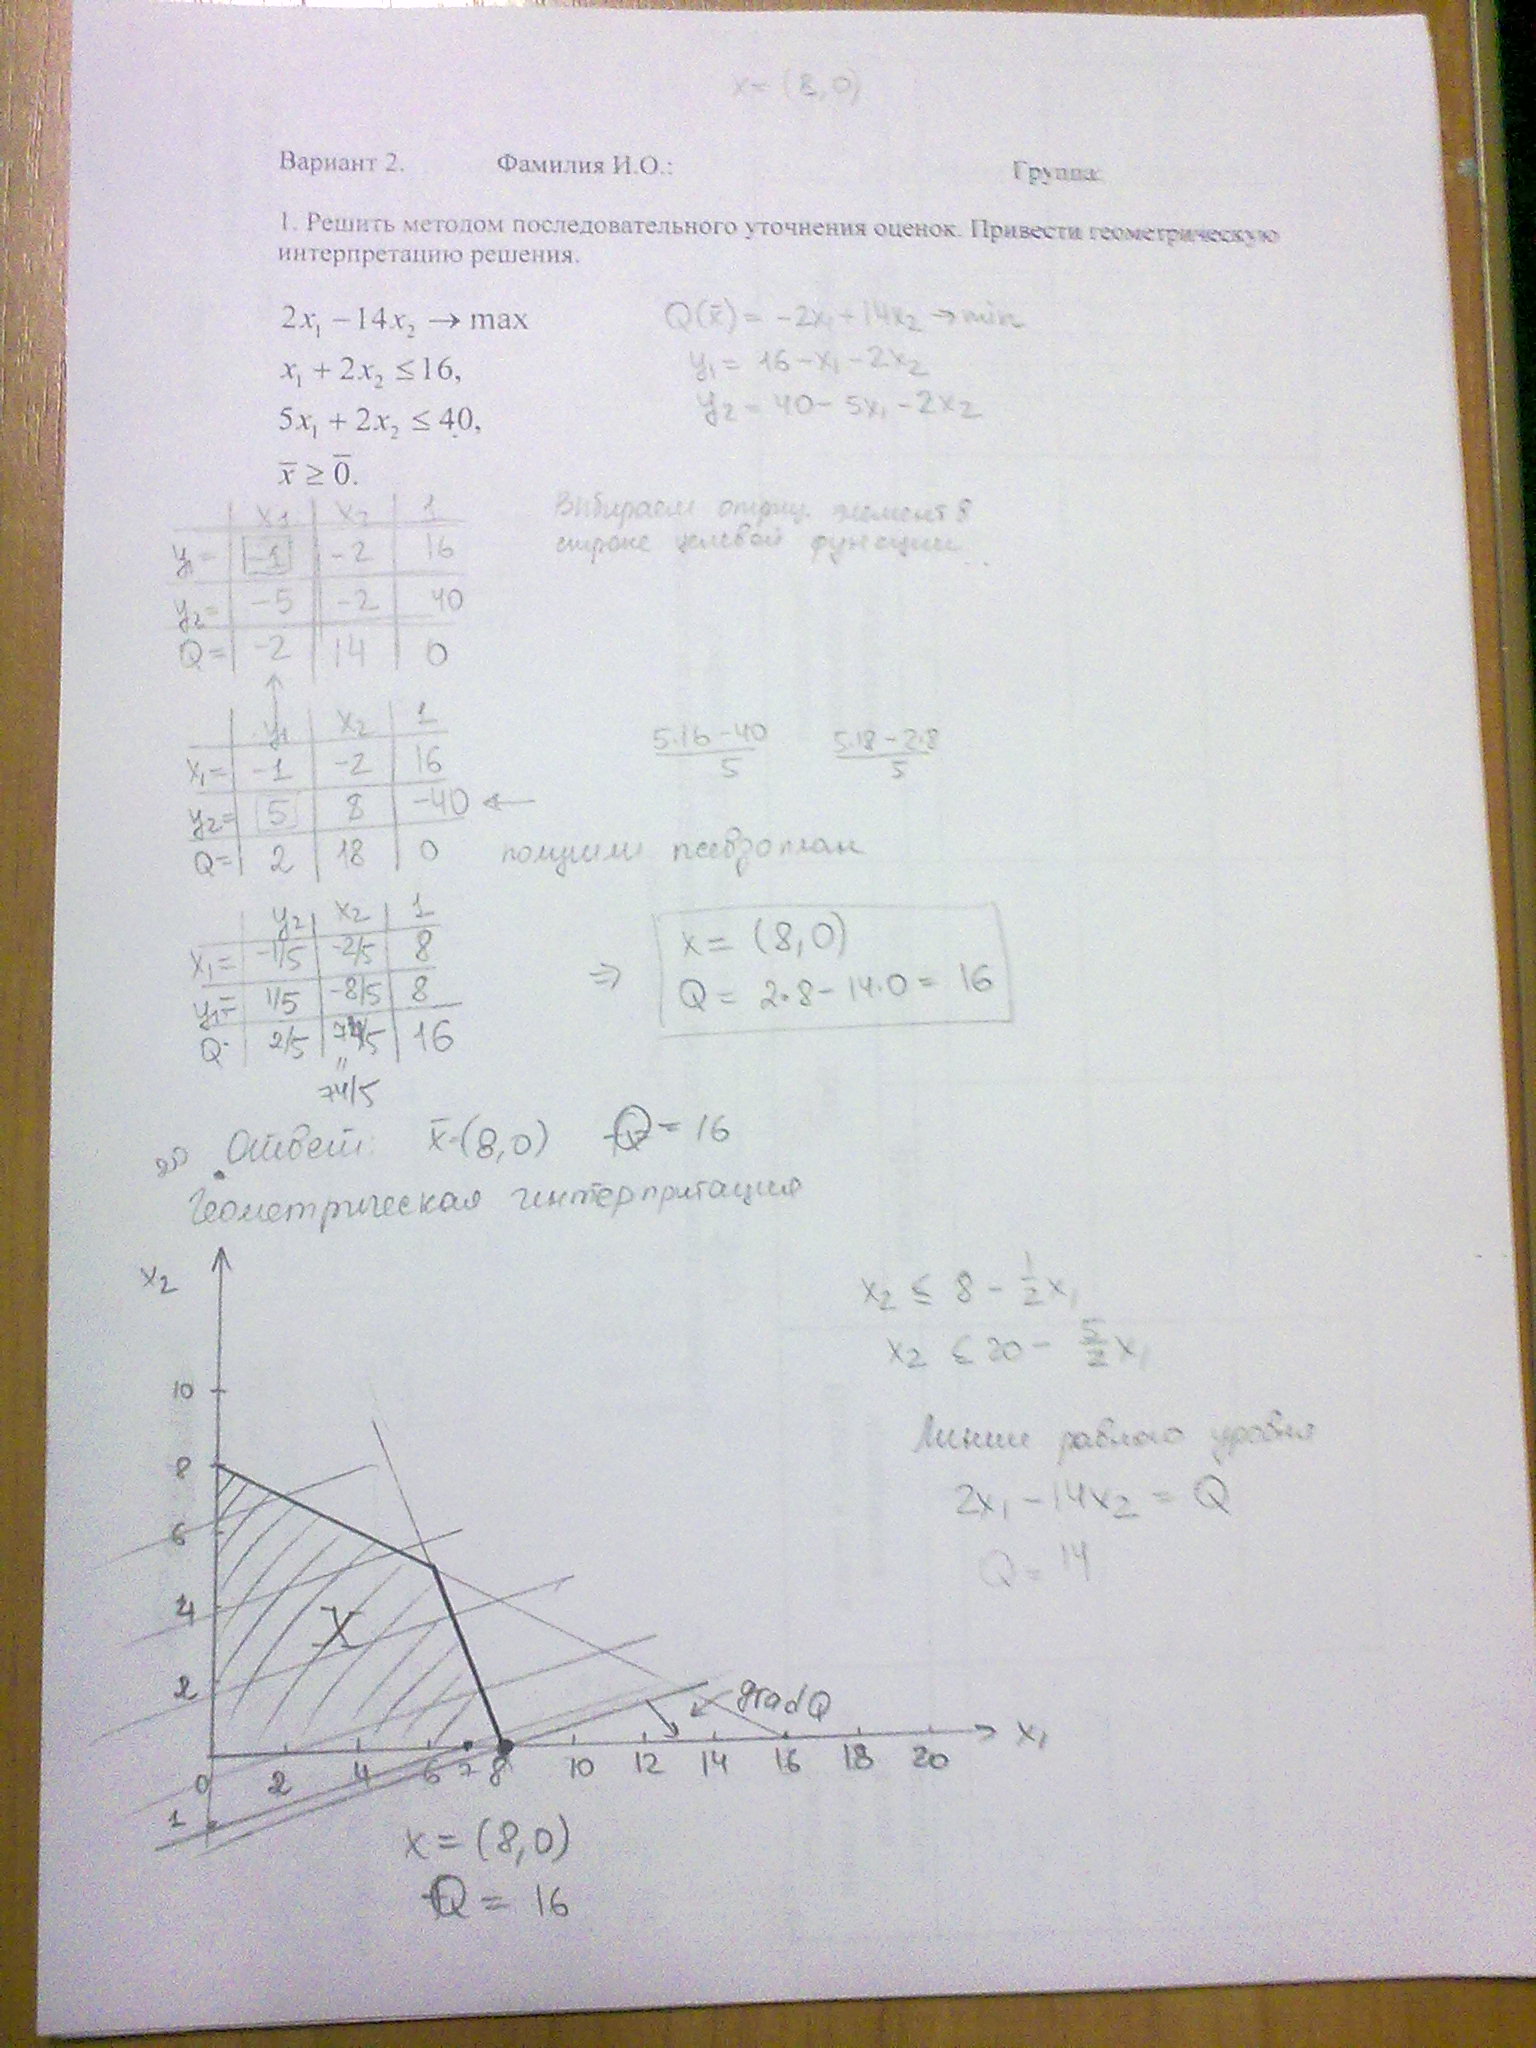 x = (8,0)
Вариант 2. Фамилия И.О.: Группа:
1. Решить методом последовательного уточнения оценок. Привести геометрическую
интерпретацию решения.
2x₁ − 14x₂ → max
x₁ + 2x₂ ≤ 16,
5x₁ + 2x₂ ≤ 40,
x̄ ≥ 0̄.
Q(x̄) = −2x₁ + 14x₂ → min
y₁ = 16 − x₁ − 2x₂
y₂ = 40 − 5x₁ − 2x₂
Выбираем отриц. элемент в
строке целевой функции
x₁ x₂ 1
y₁= −1 −2 16
y₂= −5 −2 40
Q= −2 14 0
y₁ x₂ 1
x₁= −1 −2 16
y₂= 5 8 −40
Q= 2 18 0
5·16−40 / 5
5·18−2·8 / 5
получили псевдоплан
y₂ x₂ 1
x₁= −1/5 −2/5 8
y₁= 1/5 −8/5 8
Q 2/5 74/5 16
74/5
⇒ x = (8,0)
Q = 2·8 − 14·0 = 16
Ответ: x̄ (8,0) Q = 16
Геометрическая интерпритация
x₂
10
8
6
4
2
0 2 4 6 7 8 10 12 14 16 18 20 x₁
1
X
grad Q
x = (8,0)
Q = 16
x₂ ≤ 8 − 1/2 x₁
x₂ ≤ 20 − 5/2 x₁
Линии равного уровня
2x₁ − 14x₂ = Q
Q = 14